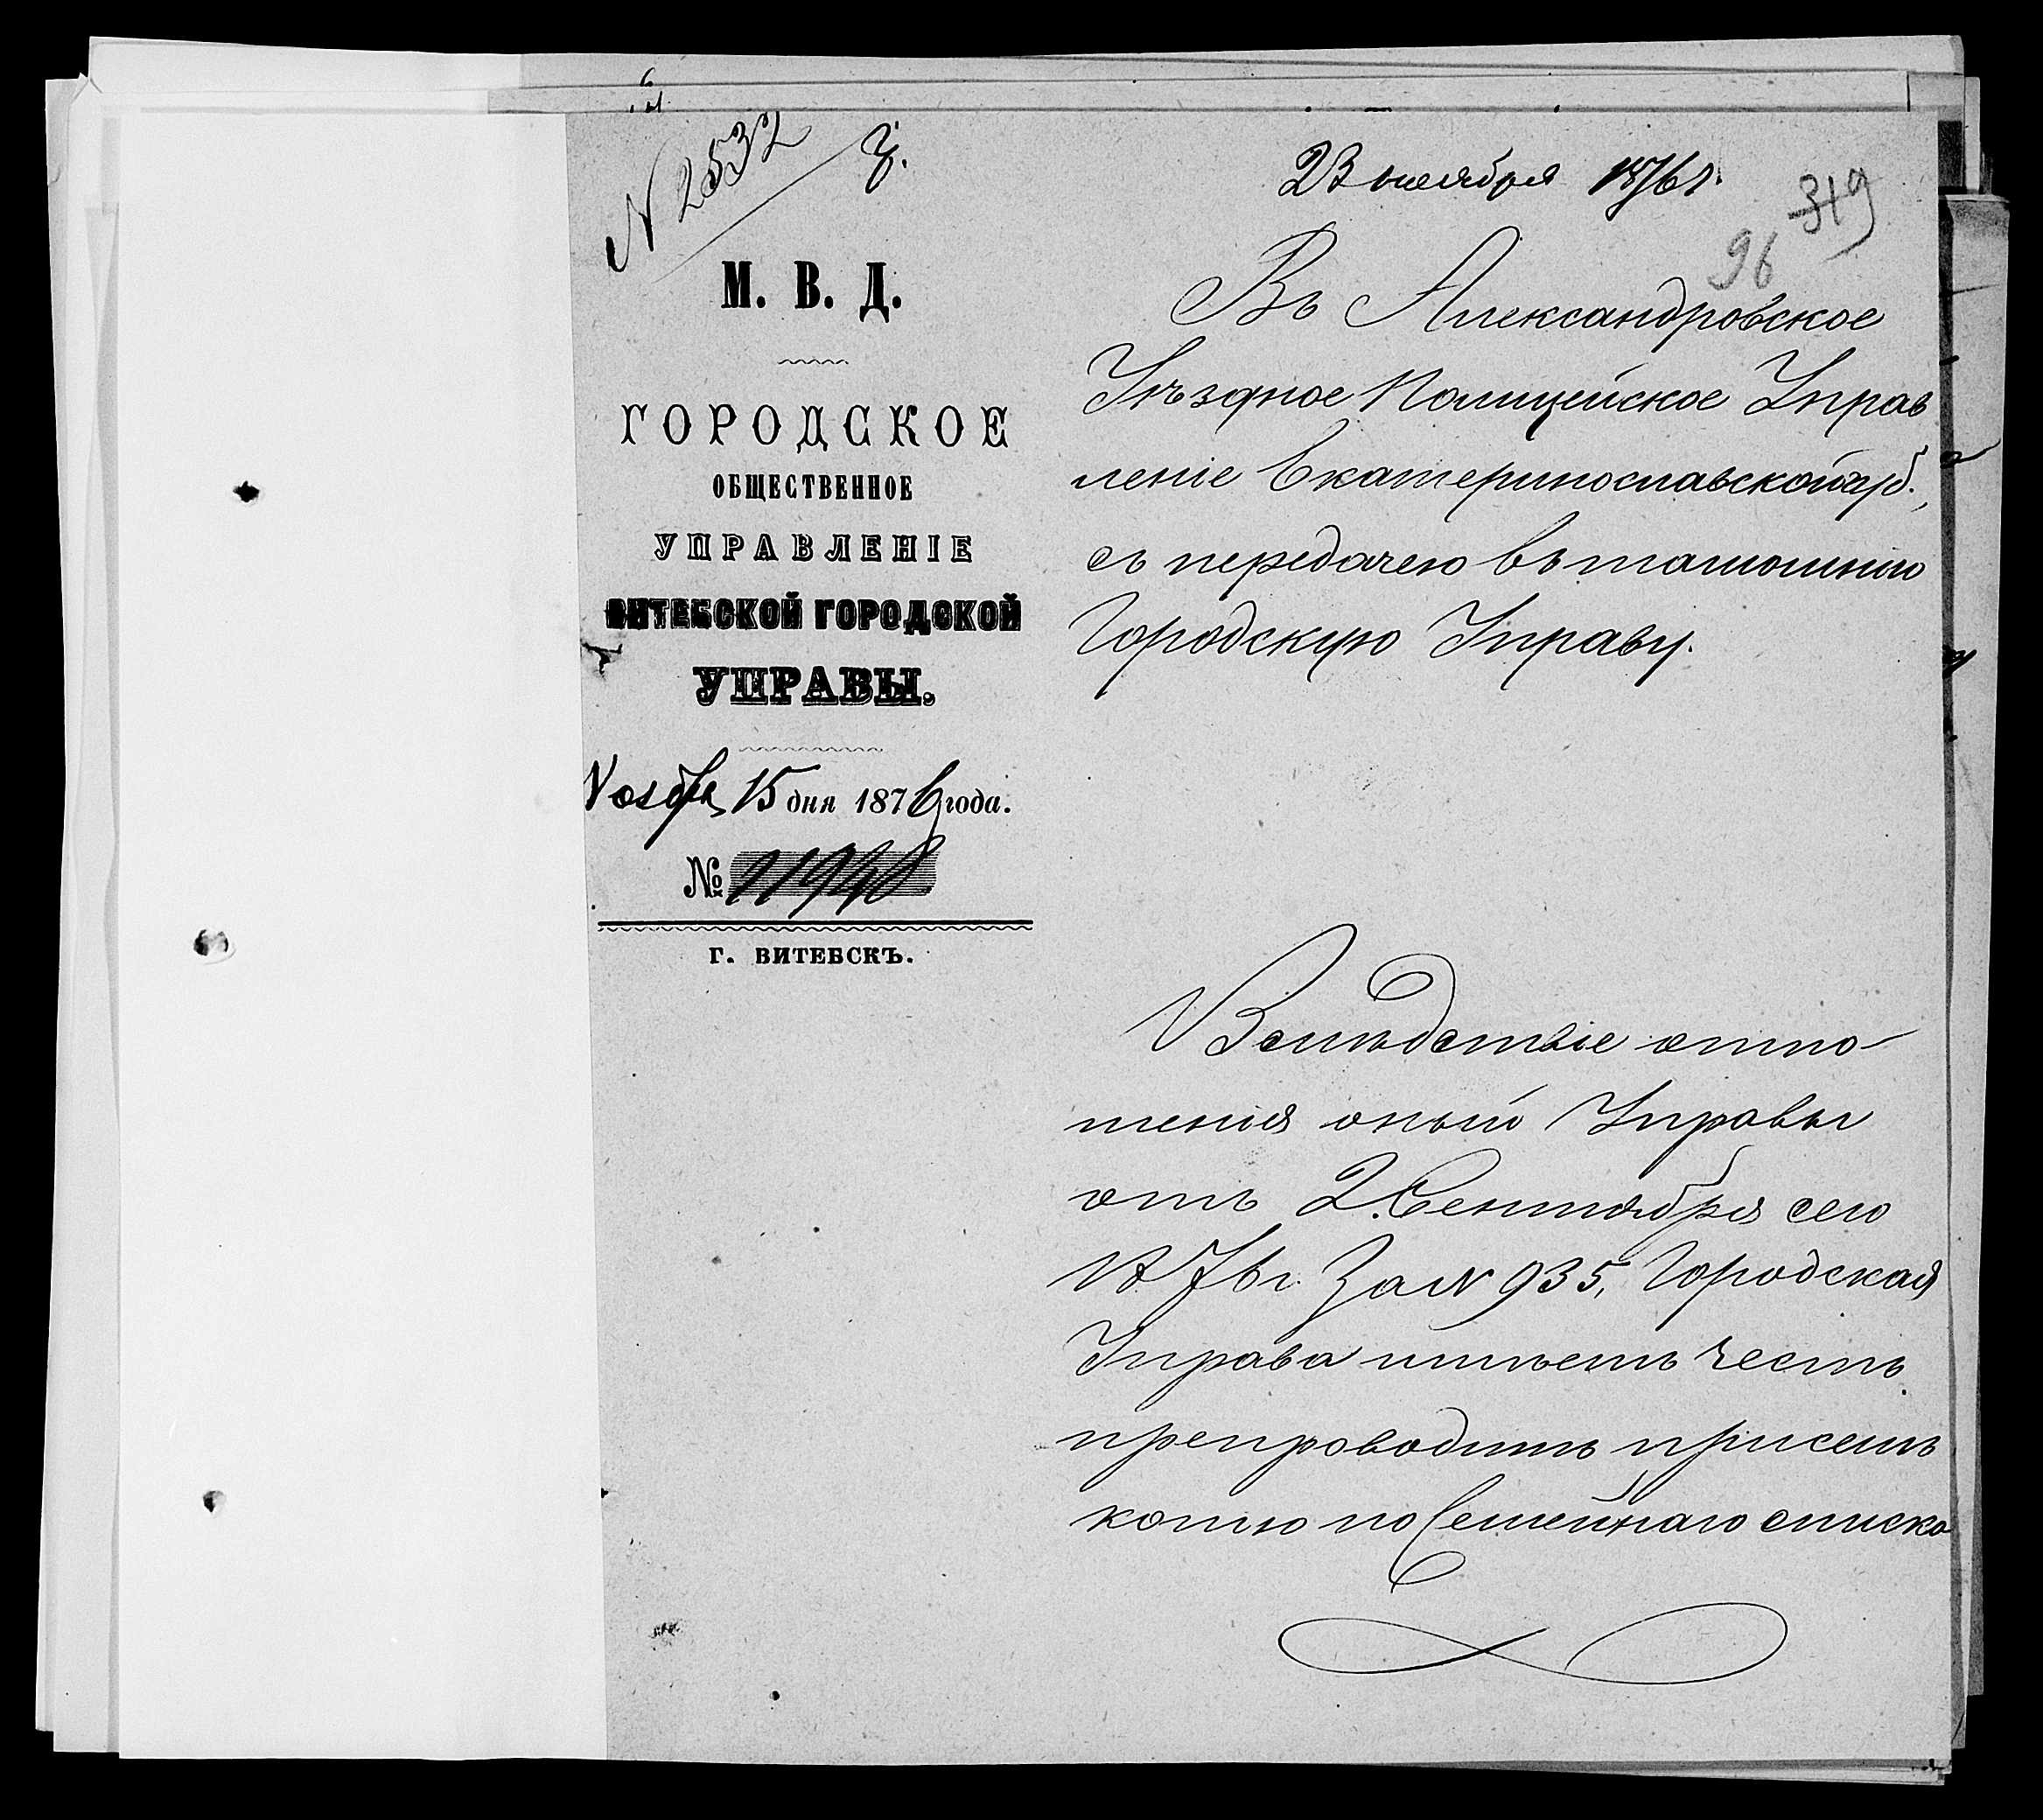 N 2532
З.
М. В. Д.
ГОРОДСКОЕ
ОБЩЕСТВЕННОЕ
УПРАВЛЕНІЕ
ВИТЕБСКОЙ ГОРОДСКОЙ
УПРАВЫ.
Ноября 15 дня 1876 года.
№ 11948
Г. ВИТЕБСКЪ.
23 ноября 1876 г.
319
96
Въ Александровское
Уѣздное Полицейское Управ
леніе Екатеринославской губ.,
съ передачею въ тамошнюю
Городскую Управу.
Вслѣдствіе отно-
шенія оной Управы
отъ 2 Сентября сего
1876 г. за N 935, Городская
Управа имѣетъ честь
препроводить при семъ
копію по Семейнаго списка